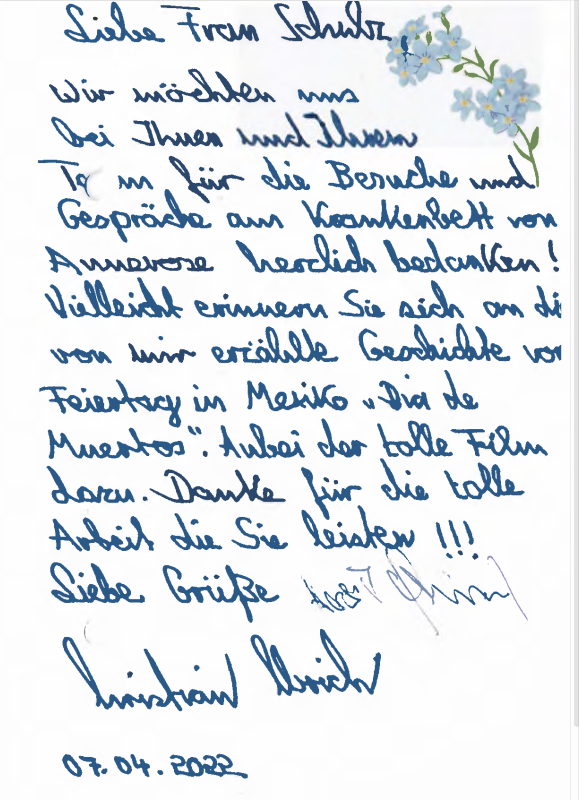 Liebe Frau Schulz
wir möchten uns
bei Ihnen und Ihrem
für die Besuche und
Gespräche am Krankenbett von
Annerose herzlich bedanken!
Vielleicht erinnern Sie sich an di
von mir erzählte Geschichte vo
Feiertag in Mexiko „Dia de
Muertos". Anbei der tolle Film
dazu. Danke für die tolle
Arbeit die Sie leisten !!!
Liebe Grüße
Christian Ulrich
07.04.2022